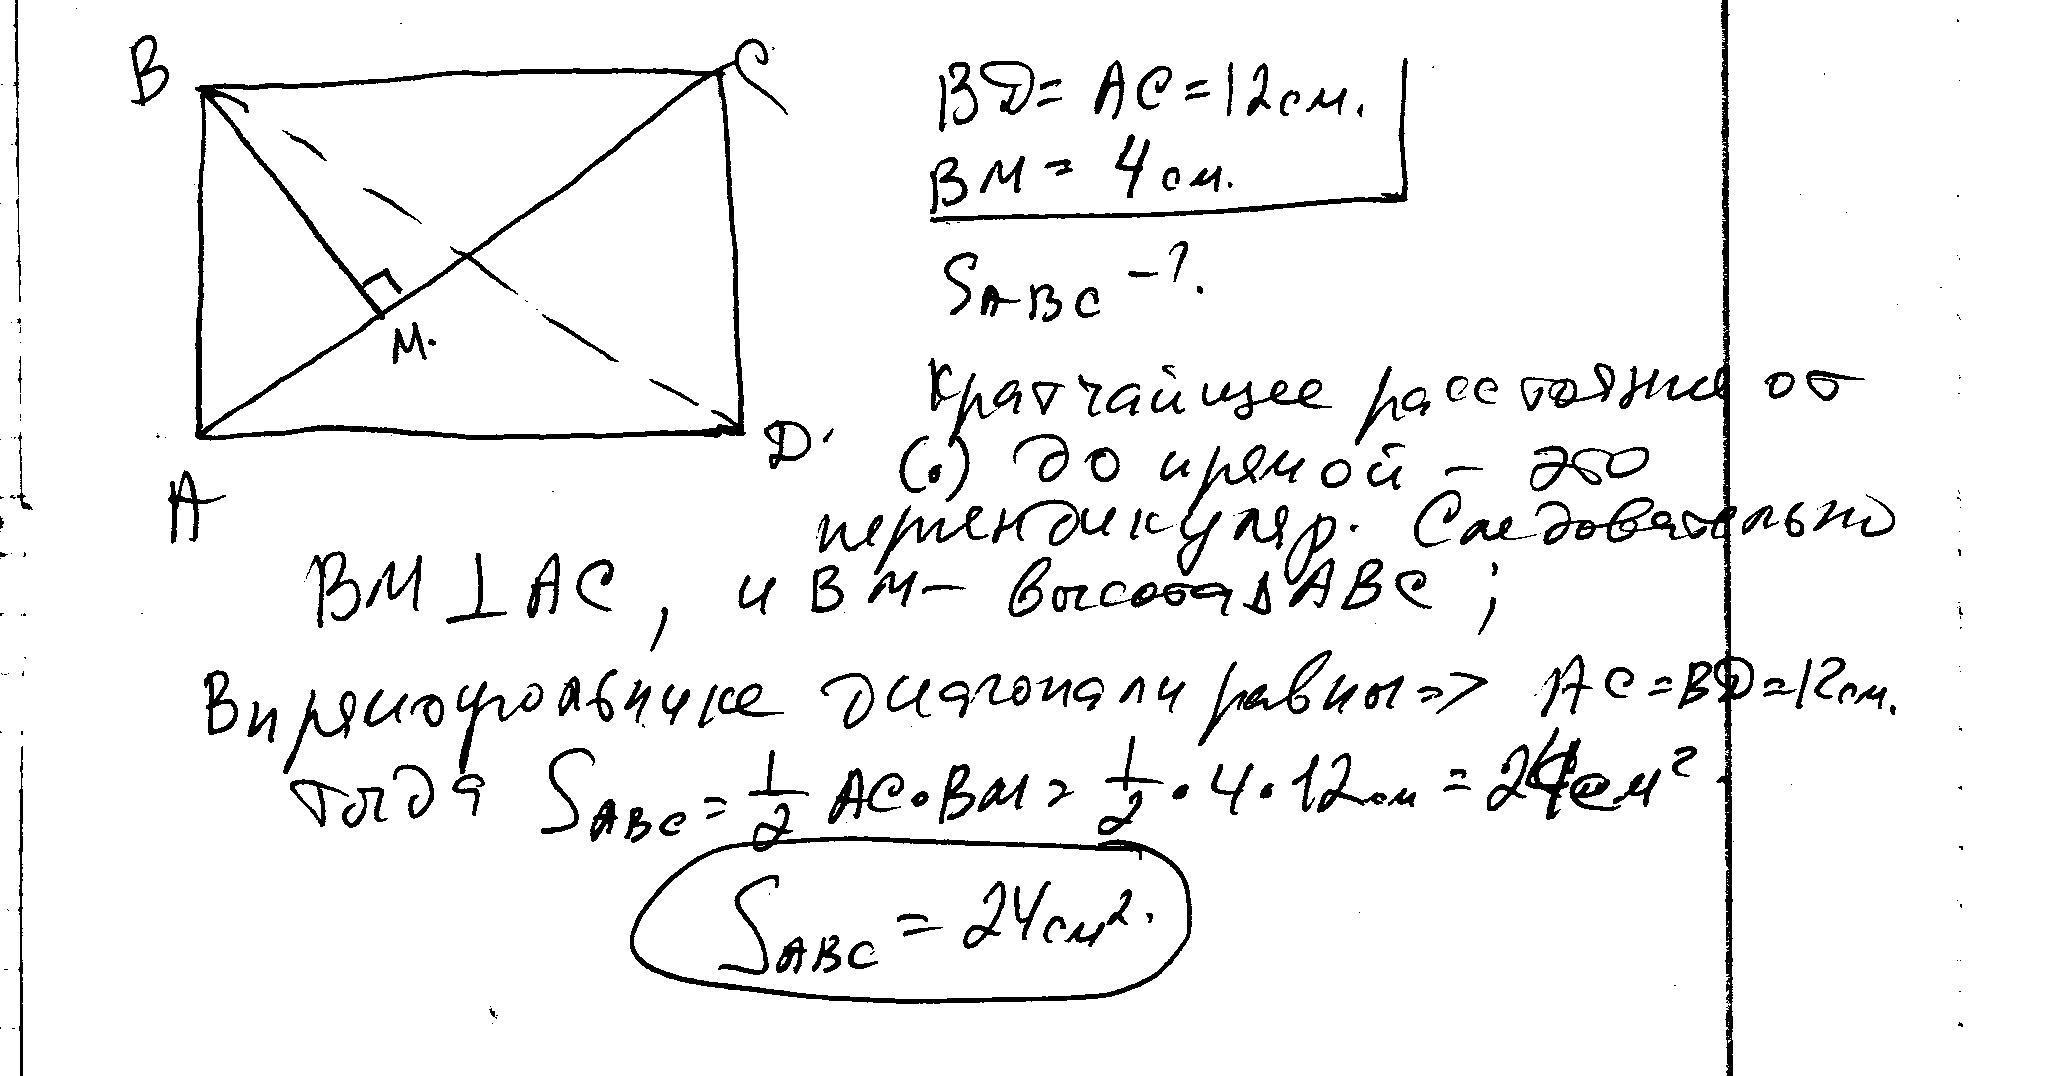 B
C
M.
A
D.
BD = AC = 12 см.
BM = 4 см.
S ABC - ?.
Кратчайшее расстояние от
(.) до прямой - это
перпендикуляр. Следовательно
BM ⊥ AC, и BM - высота Δ ABC;
В прямоугольнике диагонали равны => AC = BD = 12 см.
тогда S ABC = 1/2 AC · BM = 1/2 · 4 · 12 см = 24 см².
S ABC = 24 см².